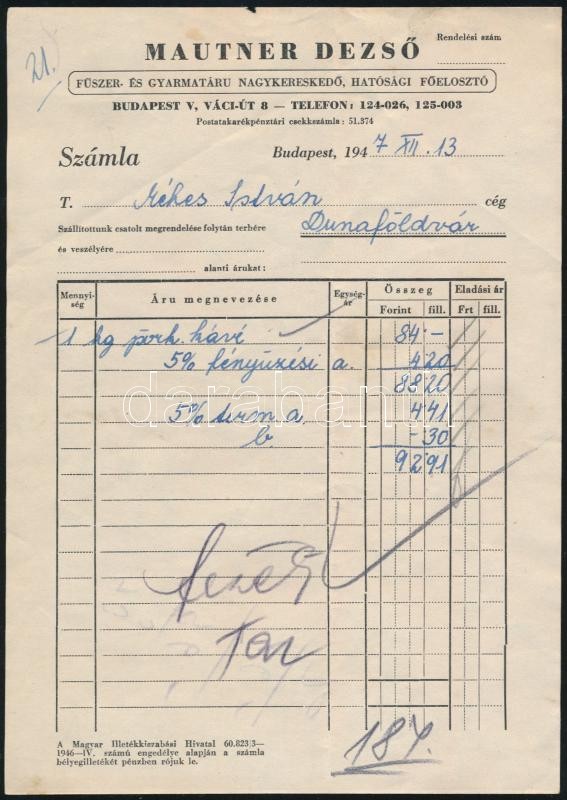 21.
Rendelési szám
MAUTNER DEZSŐ
FŰSZER- ÉS GYARMATÁRU NAGYKERESKEDŐ, HATÓSÁGI FŐELOSZTÓ
BUDAPEST V, VÁCI-ÚT 8 — TELEFON: 124-026, 125-003
Postatakarékpénztári csekkszámla: 51.374
Számla
Budapest, 1947 XII. 13
T. Mékes István cég
Szállítottunk csatolt megrendelése folytán terhére Dunaföldvár
és veszélyére
alanti árukat:
Mennyiség Áru megnevezése Egységár Összeg Eladási ár
Forint fill. Frt fill.
1 kg pörk. kávé 84.-
5% fényűzési a. 4 20
88 20
5% term a. 4 41
b - 30
92 91
darabanth
184.
A Magyar Illetékkiszabási Hivatal 60.823/3—
1946—IV. számú engedélye alapján a számla
bélyegilletékét pénzben rójuk le.